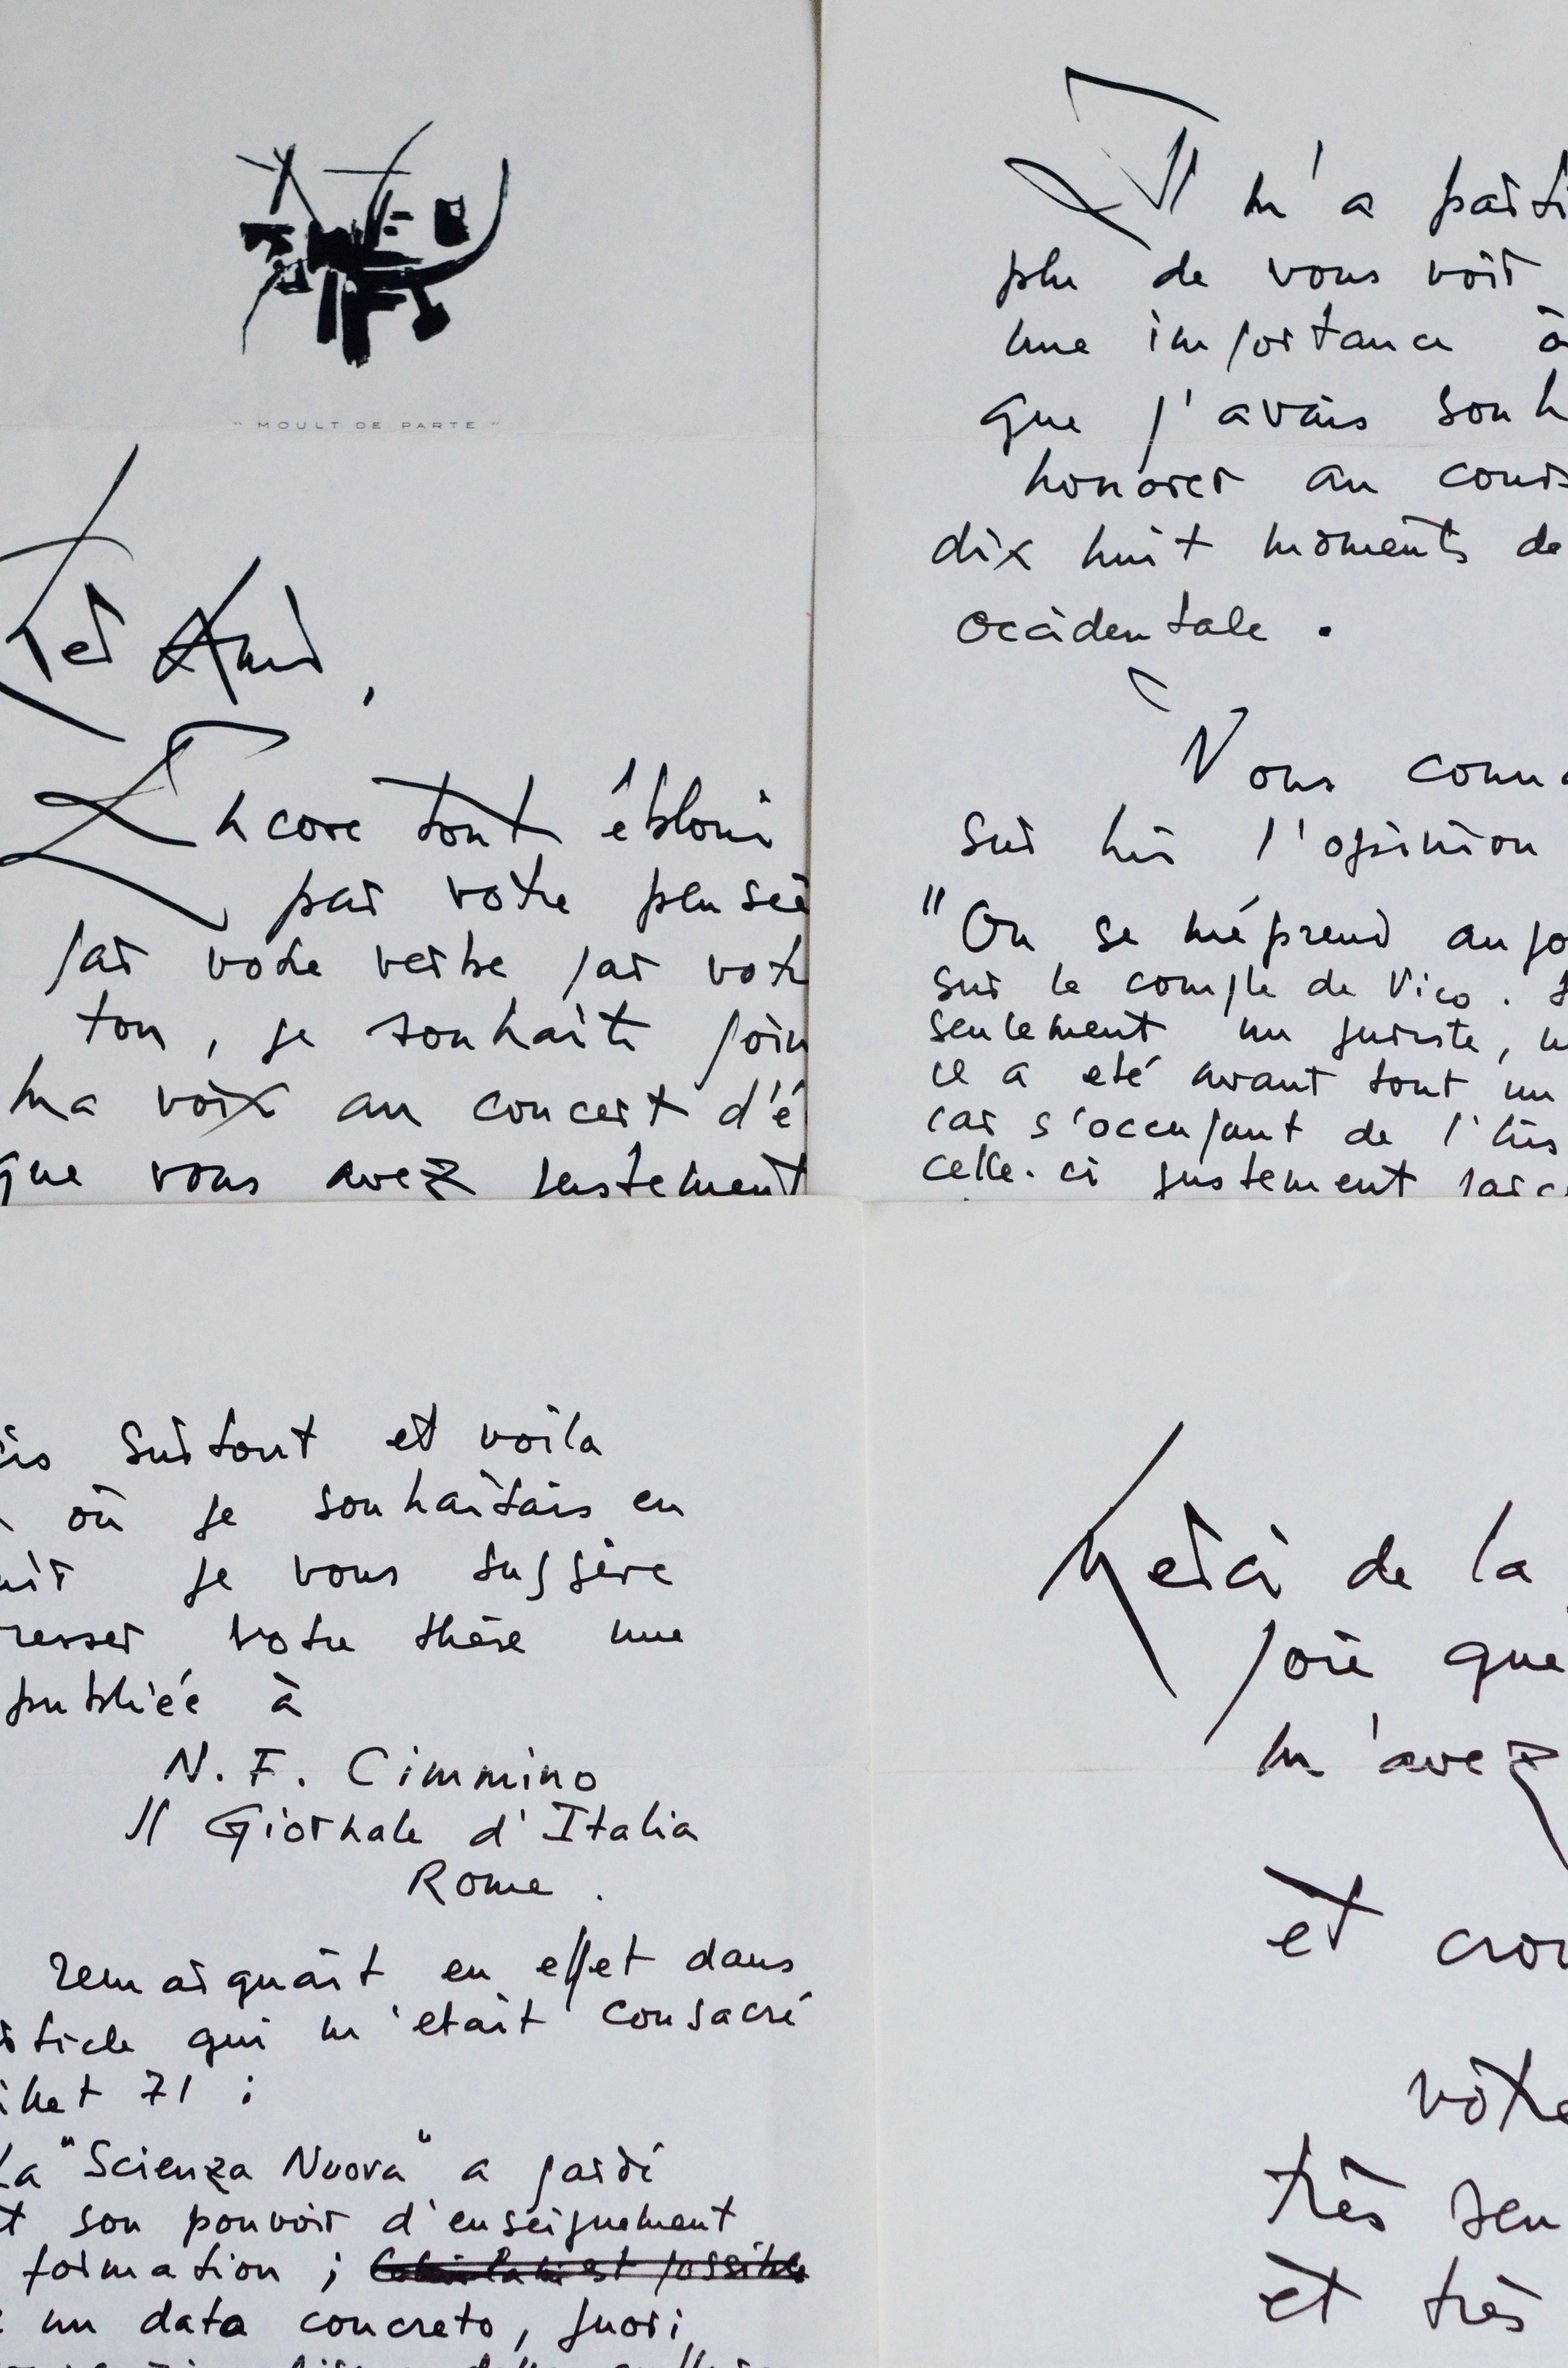 " MOULT DE PARTE "
Cher Ami,
Encore tout ébloui
par votre pensée
par votre verbe par votr
ton, je souhaite join
ma voix au concert d'é
que vous avez justement
Il m'a parti
plu de vous voir
une importance à
que j'avais souh
honorer au cours
dix huit moments de
occidentale.
Vous conna
sur lui l'opinion
"On se méprend aujo
sur le compte de Vico.
seulement un juriste,
il a été avant tout un
car s'occupant de l'his
celle-ci justement parc
is surtout et voila
où je souhaitais en
nir je vous suggère
resser votre thèse une
publiée à
N. F. Cimmino
Il Giornale d'Italia
Rome.
remarquait en effet dans
rticle qui m'etait consacré
illet 71 :
La "Scienza Nuova" a gardé
t son pouvoir d'enseignement
formation ; est possible
un data concreto, fuori,
Merci de la
joie que
m'avez
et croy
votre
très sen
et très